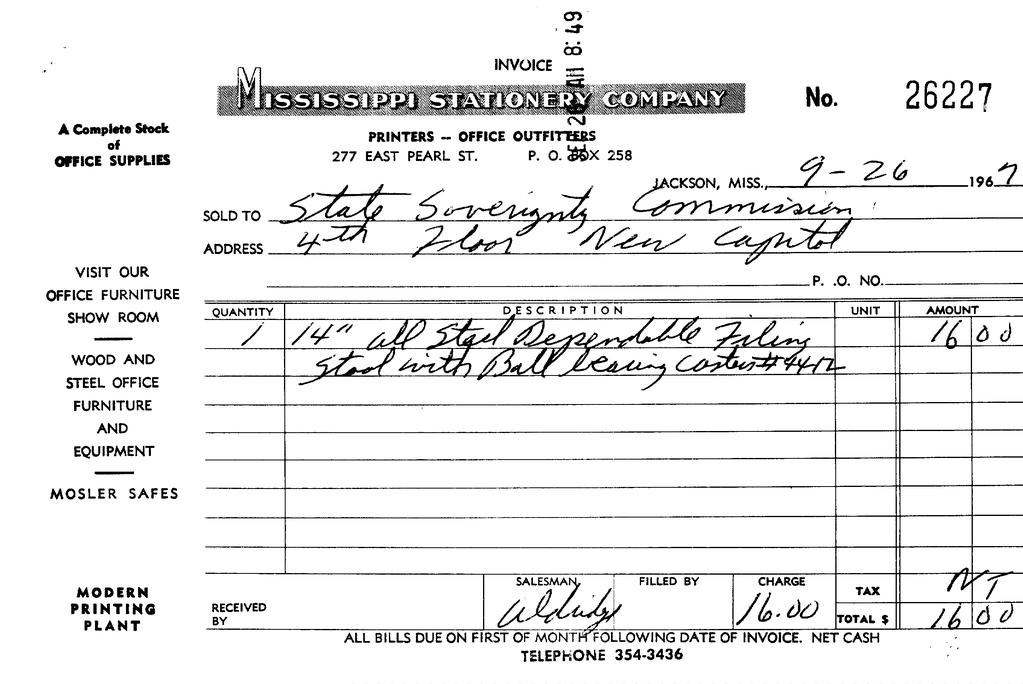 8:49
INVOICE
MISSISSIPPI STATIONERY COMPANY
No. 26227
A Complete Stock
of
OFFICE SUPPLIES
PRINTERS -- OFFICE OUTFITTERS
277 EAST PEARL ST. P. O. BOX 258
JACKSON, MISS., 9-26 1967
SOLD TO State Soverignty Commission
ADDRESS 4th Floor New Capitol
P. .O. NO.
VISIT OUR
OFFICE FURNITURE
SHOW ROOM
WOOD AND
STEEL OFFICE
FURNITURE
AND
EQUIPMENT
MOSLER SAFES
QUANTITY DESCRIPTION UNIT AMOUNT
1 14" all Steel Dependable Filing 16 00
Stool with Ball bearing casters #
MODERN
PRINTING
PLANT
RECEIVED
BY
SALESMAN Aldridge
FILLED BY
CHARGE 16.00
TAX NT
TOTAL $ 16 00
ALL BILLS DUE ON FIRST OF MONTH FOLLOWING DATE OF INVOICE. NET CASH
TELEPHONE 354-3436